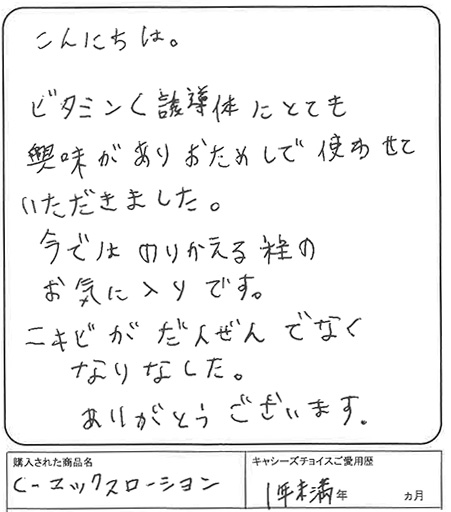 こんにちは。
ビタミンC誘導体にとても
興味がありおためしで使わせて
いただきました。
今ではのりかえる程の
お気に入りです。
ニキビがだんぜんでなく
なりなした。
ありがとうございます。
購入された商品名
キャシーズチョイスご愛用歴
C-エックスローション
1年未満年 ヵ月